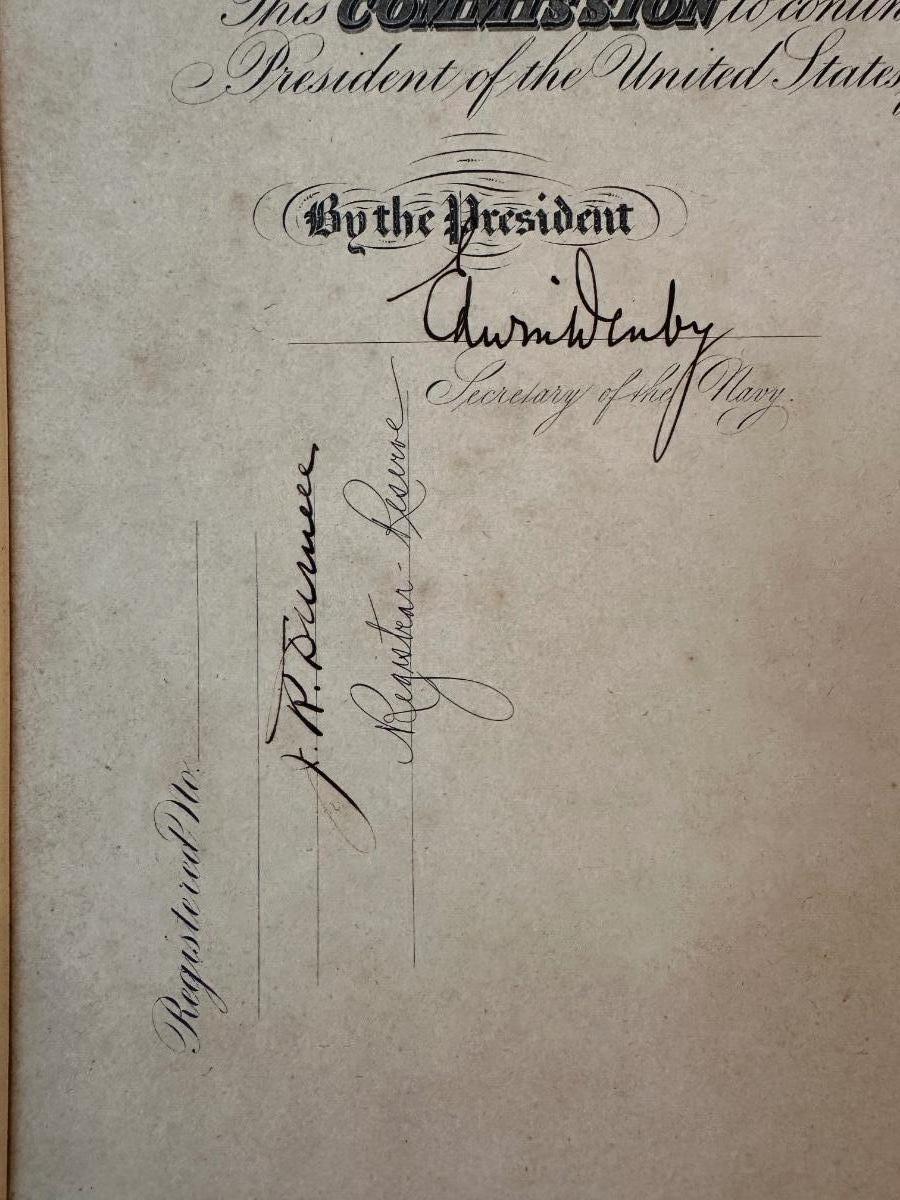 This COMMISSION to contin
President of the United States
By the President
Edwin Denby
Secretary of the Navy.
Registrar - Reserve
J. R. Dumee
Registered No.